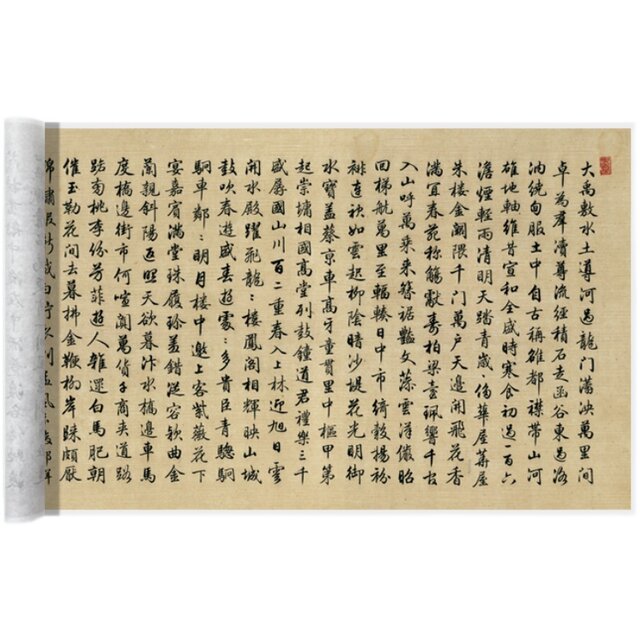 大禹敷水土導河過龍門瀰泱萬里間
卓為羣瀆尊流經積石走函谷東過洛
汭繞甸服土中自古稱雄都襟帶山河
雄地軸維昔宣和全盛時寒食初過一百六
澹煙輕雨清明天踏青歲華屋
朱樓金闕隈千門萬戶天邊開飛花香
滿宜春苑称觴獻壽柏梁臺珮響千古
入山呼萬乘來簪裾豔文藻雲漢儼昭
回梯航萬里至輻輳日中市綺縠楊
連袂如雲起柳陰暗沙堤花光明御
水寶蓋蔡京車高牙童貫里中樞甲第
起崇墉相國高堂列鼓鐘道君禮樂三千
盛孱國山川百二重春入上林迎旭日雲
開水殿躍飛龍〻樓鳳閣相輝映山城
鼓吹春遊盛春遊處〻多貴臣青驄駟
駟車鄰〻明月樓中邀上客紫薇花下
宴嘉賓滿堂珠履珍羞錯從容軟曲金
蘭親斜陽返照天欲暮汴水橋邊車馬
度橋邊街市何喧闐萬貨千商夾道路
南桃李份芳菲遊人雜遝白馬肥朝
催玉勒花間去暮拂金鞭柳岸頗厭